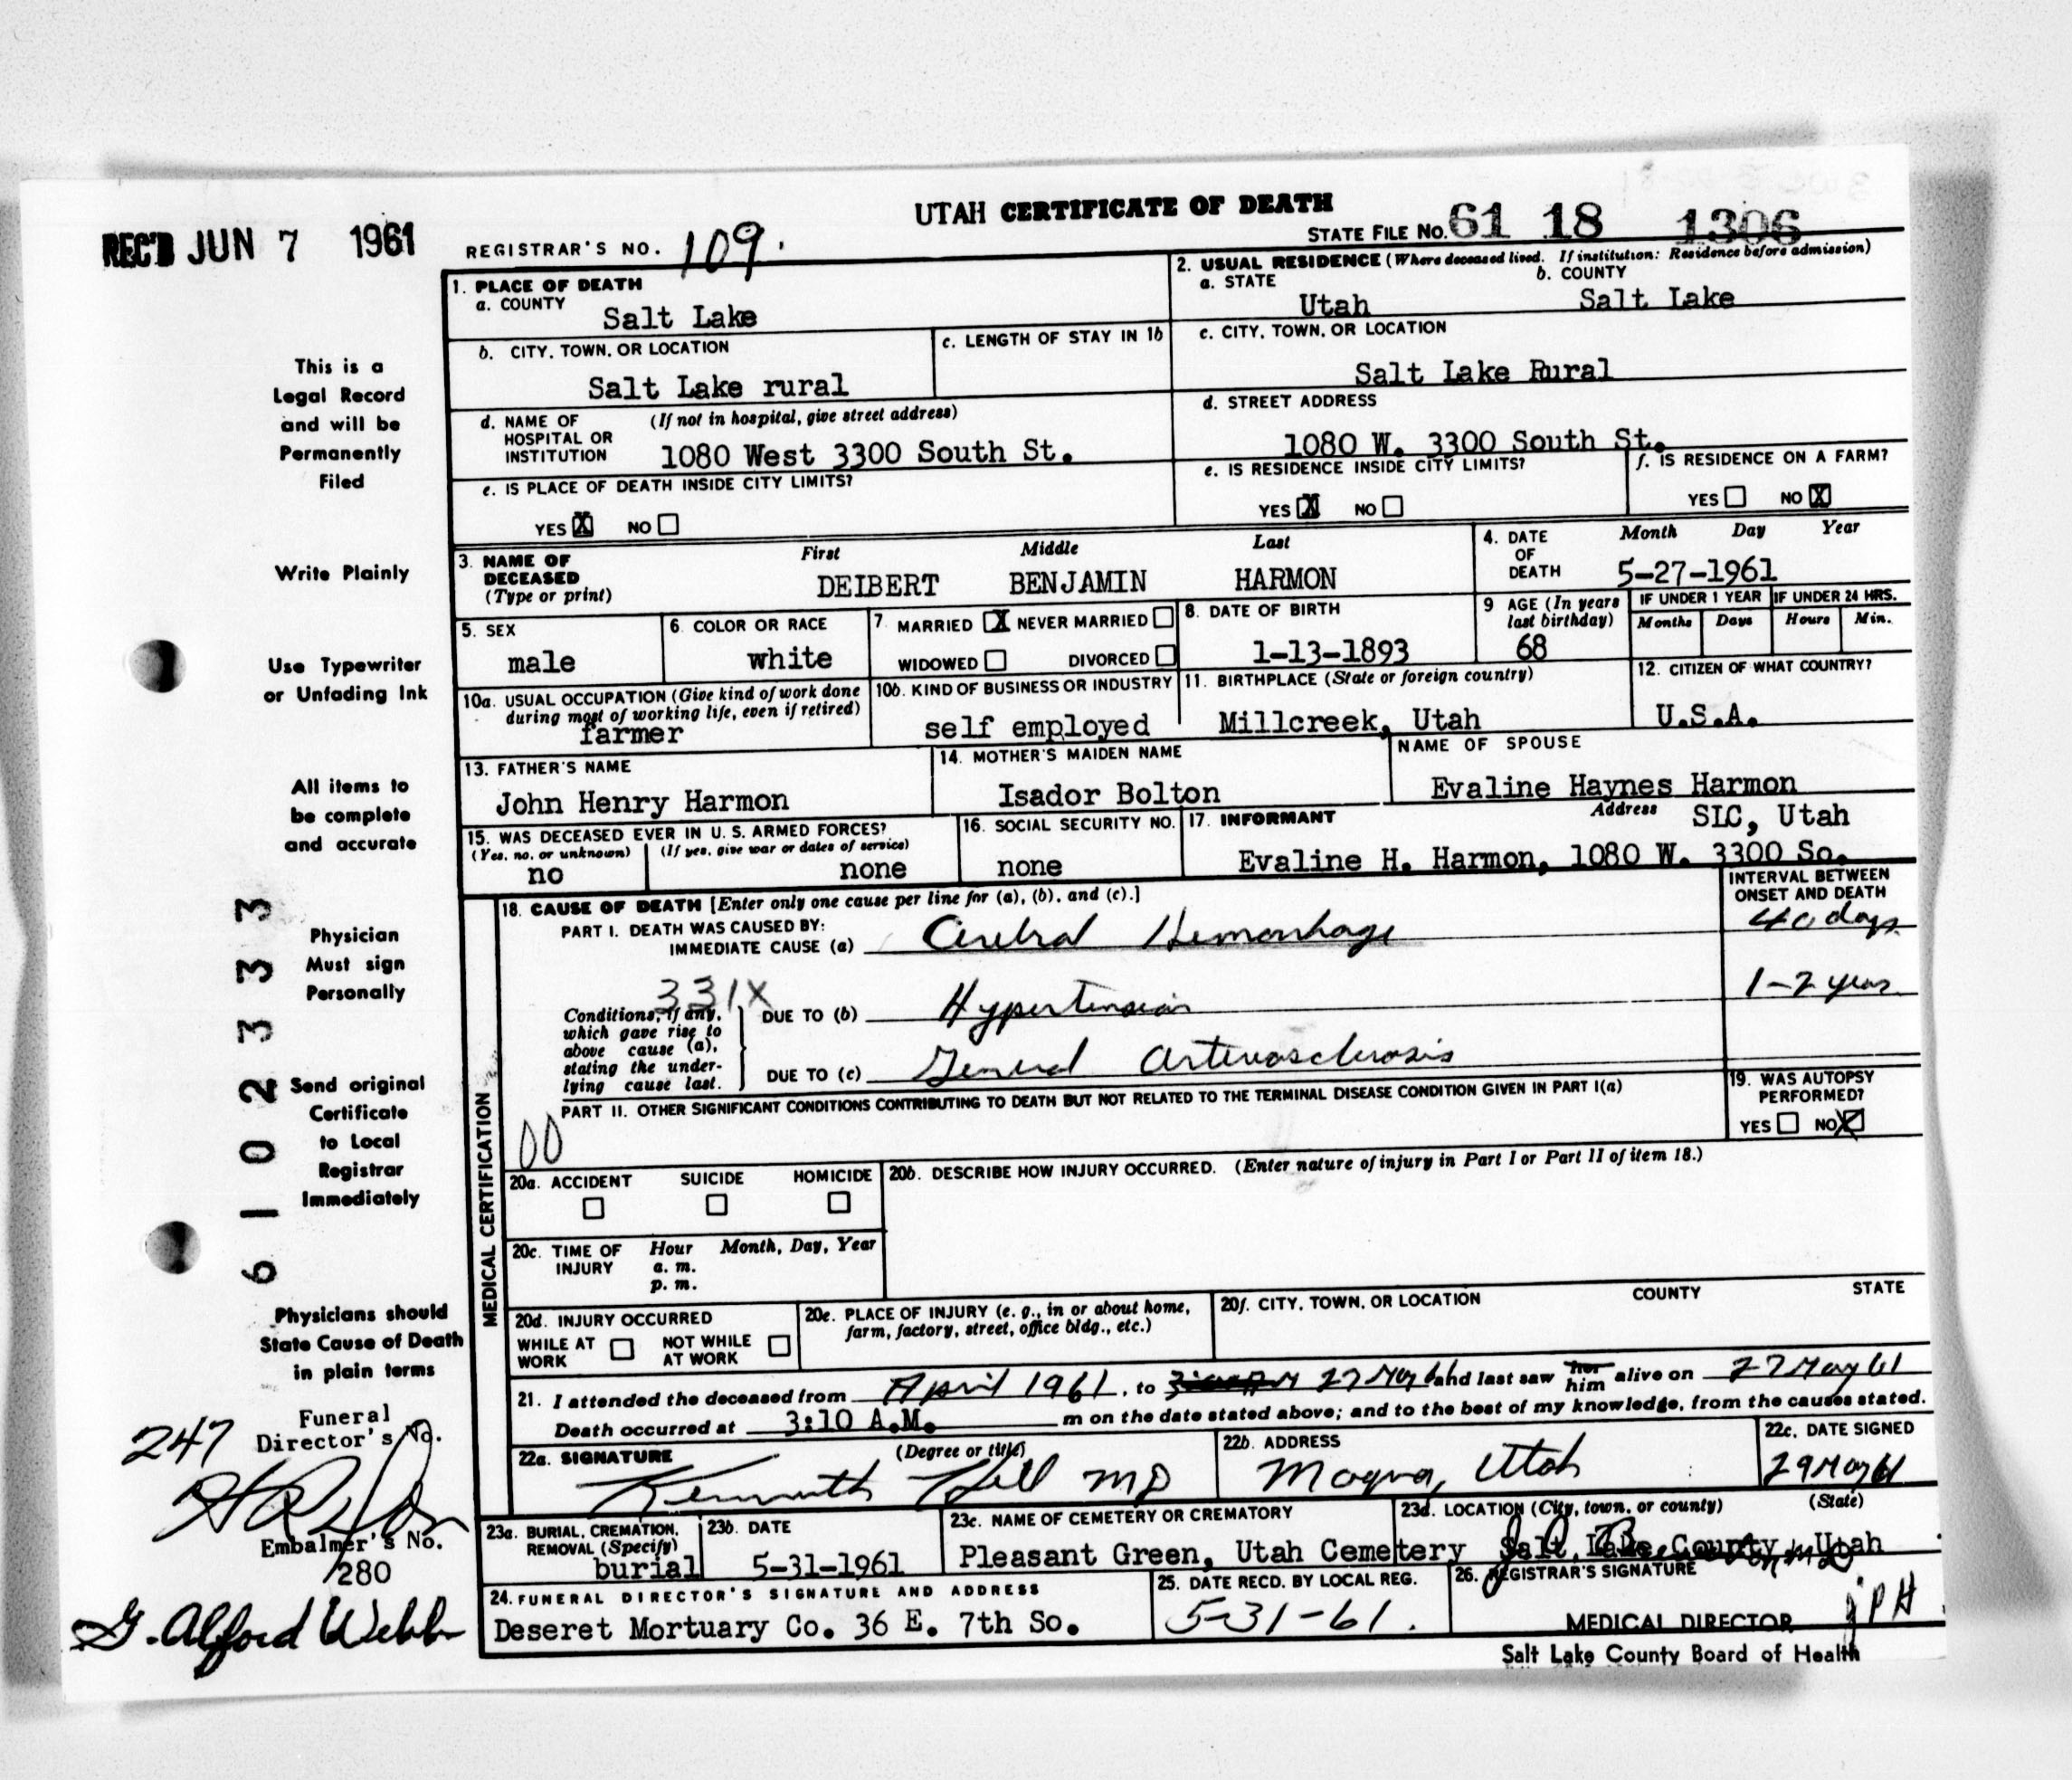 UTAH CERTIFICATE OF DEATH
REC'D JUN 7 1961
REGISTRAR'S NO. 109.
STATE FILE NO. 61 18 1306
1. PLACE OF DEATH
a. COUNTY
Salt Lake
2. USUAL RESIDENCE (Where deceased lived. If institution: Residence before admission)
a. STATE
Utah
b. COUNTY
Salt Lake
b. CITY, TOWN, OR LOCATION
Salt Lake rural
c. LENGTH OF STAY IN 1b
c. CITY, TOWN, OR LOCATION
Salt Lake Rural
d. NAME OF HOSPITAL OR INSTITUTION
(If not in hospital, give street address)
1080 West 3300 South St.
d. STREET ADDRESS
1080 W. 3300 South St.
e. IS PLACE OF DEATH INSIDE CITY LIMITS?
YES X NO
e. IS RESIDENCE INSIDE CITY LIMITS?
YES X NO
f. IS RESIDENCE ON A FARM?
YES NO X
3. NAME OF DECEASED
(Type or print)
First Middle Last
DEIBERT BENJAMIN HARMON
4. DATE OF DEATH
Month Day Year
5-27-1961
5. SEX
male
6. COLOR OR RACE
white
7. MARRIED X NEVER MARRIED
WIDOWED DIVORCED
8. DATE OF BIRTH
1-13-1893
9 AGE (In years last birthday)
68
IF UNDER 1 YEAR
Months Days
IF UNDER 24 HRS.
Hours Min.
10a. USUAL OCCUPATION (Give kind of work done during most of working life, even if retired)
farmer
10b. KIND OF BUSINESS OR INDUSTRY
self employed
11. BIRTHPLACE (State or foreign country)
Millcreek, Utah
12. CITIZEN OF WHAT COUNTRY?
U.S.A.
13. FATHER'S NAME
John Henry Harmon
14. MOTHER'S MAIDEN NAME
Isador Bolton
NAME OF SPOUSE
Evaline Haynes Harmon
15. WAS DECEASED EVER IN U. S. ARMED FORCES?
(Yes, no, or unknown) (If yes, give war or dates of service)
no none
16. SOCIAL SECURITY NO.
none
17. INFORMANT Address
SLC, Utah
Evaline H. Harmon, 1080 W. 3300 So.
MEDICAL CERTIFICATION
18. CAUSE OF DEATH [Enter only one cause per line for (a), (b), and (c).]
INTERVAL BETWEEN ONSET AND DEATH
PART I. DEATH WAS CAUSED BY:
IMMEDIATE CAUSE (a) Cerebral Hemorrhage
40 days
331X
Conditions, if any, which gave rise to above cause (a), stating the underlying cause last.
DUE TO (b) Hypertension
1-2 years
DUE TO (c) General Arteriosclerosis
PART II. OTHER SIGNIFICANT CONDITIONS CONTRIBUTING TO DEATH BUT NOT RELATED TO THE TERMINAL DISEASE CONDITION GIVEN IN PART I(a)
00
19. WAS AUTOPSY PERFORMED?
YES NO X
20a. ACCIDENT SUICIDE HOMICIDE
20b. DESCRIBE HOW INJURY OCCURRED. (Enter nature of injury in Part I or Part II of item 18.)
20c. TIME OF INJURY
Hour Month, Day, Year
a. m.
p. m.
20d. INJURY OCCURRED
WHILE AT WORK NOT WHILE AT WORK
20e. PLACE OF INJURY (e. g., in or about home, farm, factory, street, office bldg., etc.)
20f. CITY, TOWN, OR LOCATION COUNTY STATE
21. I attended the deceased from April 1961, to 27 May 61 and last saw her him alive on 27 May 61
Death occurred at 3:10 A.M. m on the date stated above; and to the best of my knowledge, from the causes stated.
22a. SIGNATURE (Degree or title)
Kenneth Hill MD
22b. ADDRESS
Magna, Utah
22c. DATE SIGNED
29 May 61
23a. BURIAL, CREMATION, REMOVAL (Specify)
burial
23b. DATE
5-31-1961
23c. NAME OF CEMETERY OR CREMATORY
Pleasant Green, Utah Cemetery
23d. LOCATION (City, town, or county) (State)
Salt Lake County Utah
24. FUNERAL DIRECTOR'S SIGNATURE AND ADDRESS
Deseret Mortuary Co. 36 E. 7th So.
25. DATE RECD. BY LOCAL REG.
5-31-61.
26. REGISTRAR'S SIGNATURE
MEDICAL DIRECTOR
JPH
Salt Lake County Board of Health
This is a
Legal Record
and will be
Permanently
Filed
Write Plainly
Use Typewriter
or Unfading Ink
All items to
be complete
and accurate
Physician
Must sign
Personally
Send original
Certificate
to Local
Registrar
Immediately
Physicians should
State Cause of Death
in plain terms
6102333
Funeral
Director's No.
247
Embalmer's No.
280
G. Alford Webb